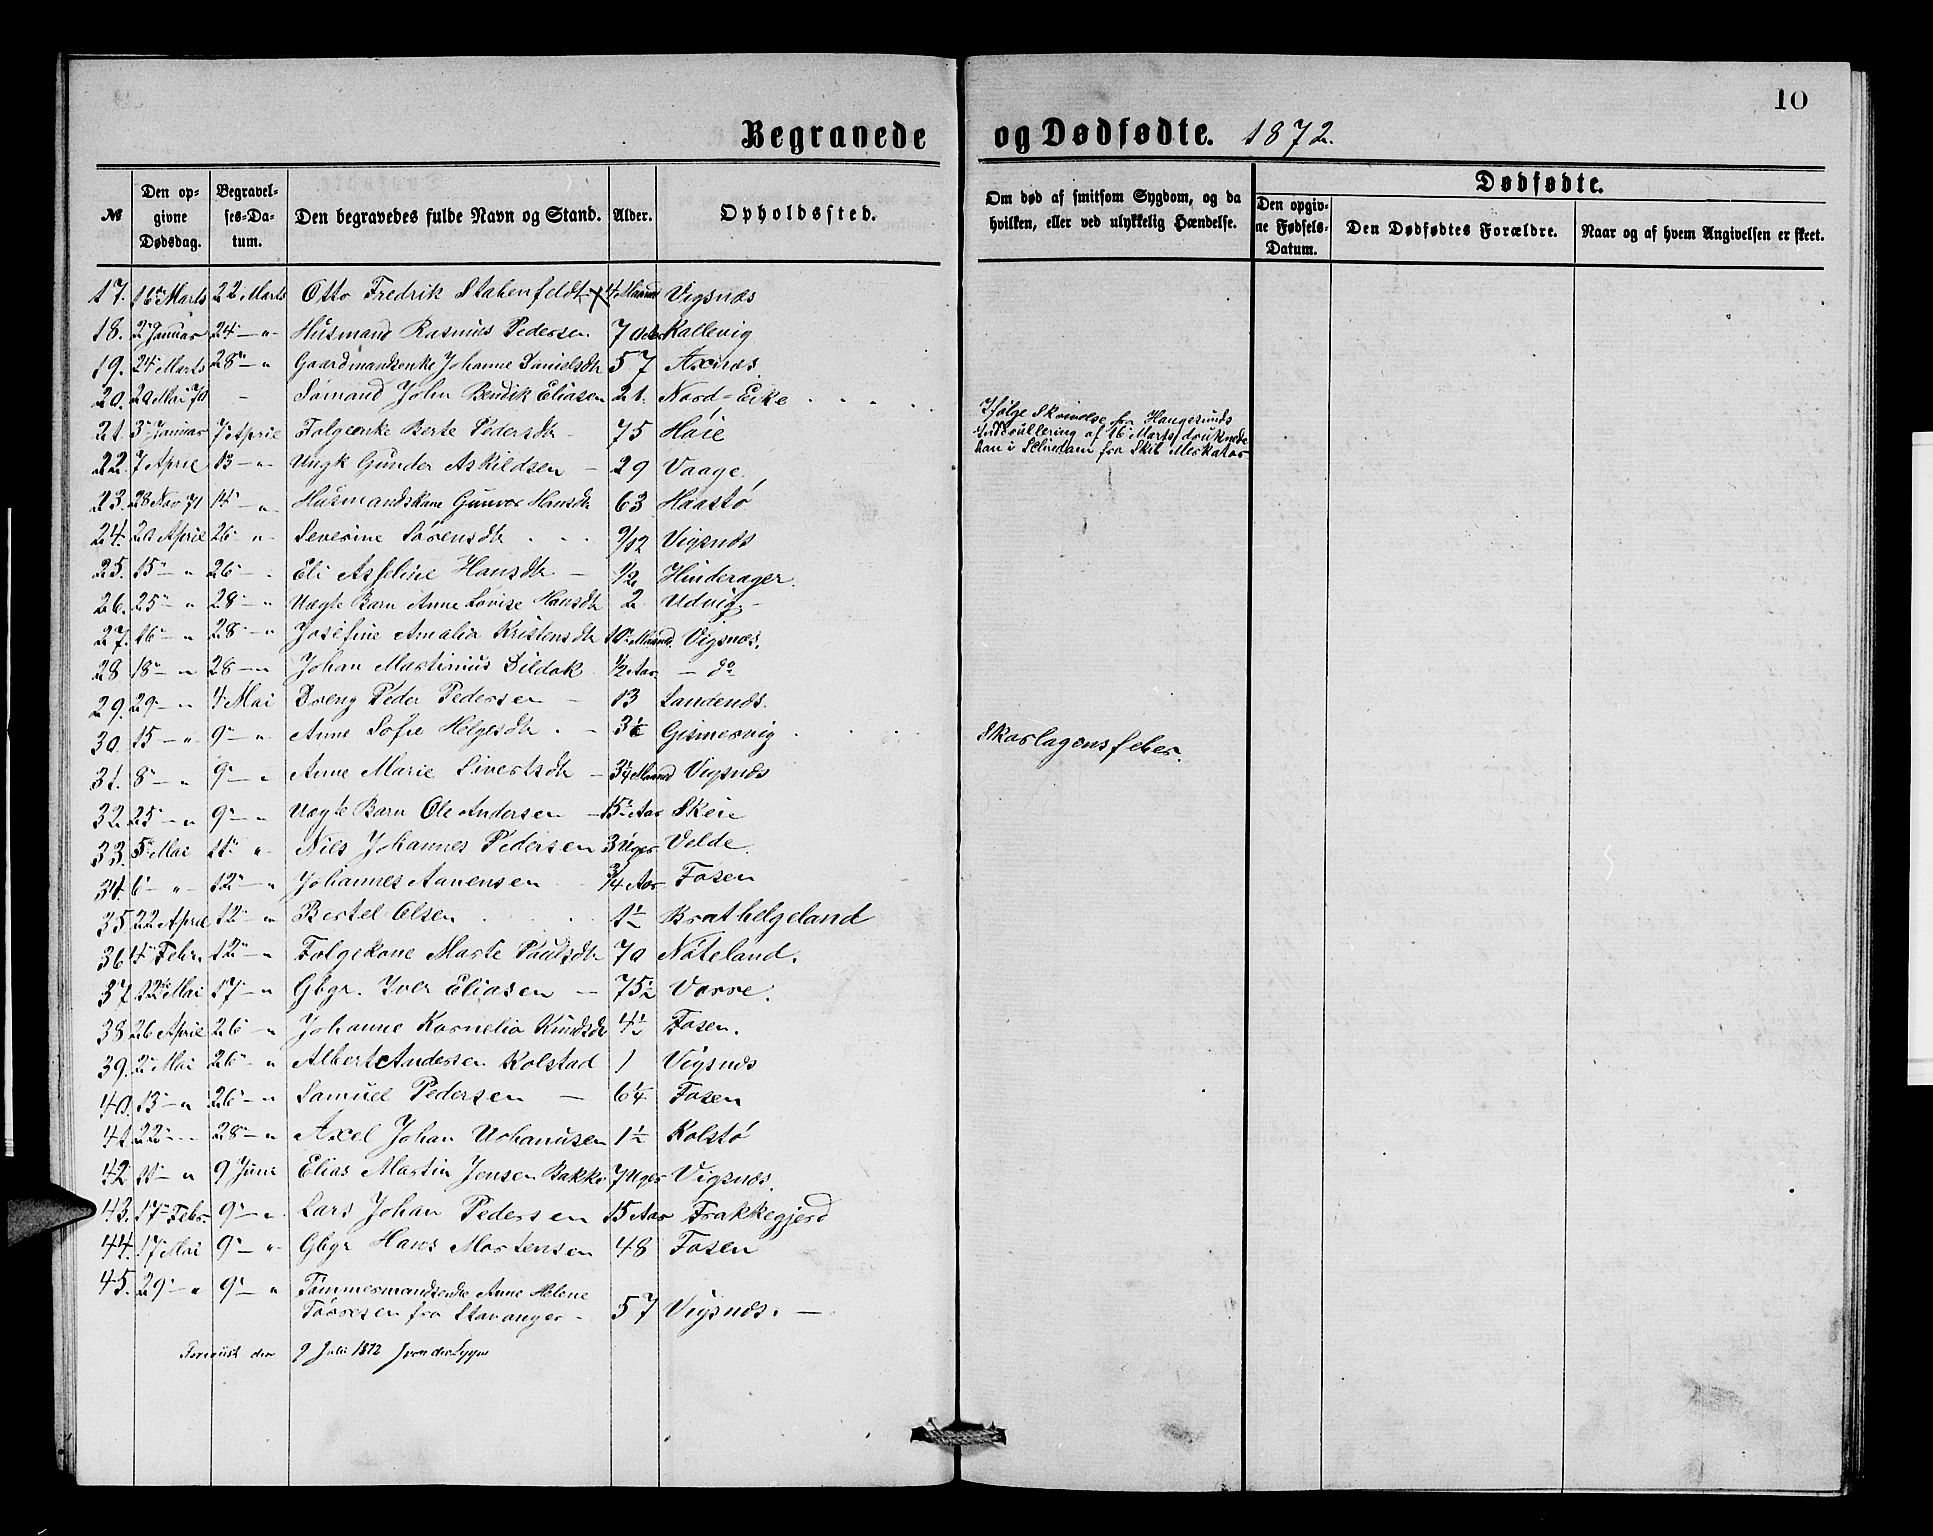 10
Begravede og Dødfødte. 1872.
№ Den opgivne Dødsdag. Begravelses-Datum. Den begravedes fulde Navn og Stand. Alder. Opholdssted. Om død af smitsom Sygdom, og da hvilken, eller ved ulykkelig Hændelse. Dødfødte. Den opgivne Fødsels-Datum. Den Dødfødtes Forældre. Naar og af hvem Angivelsen er skeet.
17. 16 Marts 22 Marts Otto Fredrik Stahenfeldt 4 Maaned Vigsnæs
18. 2 Januar 24 — " Husmand Rasmus Pedersen 70 Kallevig
19. 24 Marts 28 — " Gaardmandsenke Johanne Danielsdtr 57 Axnæs.
20. 20 Mai 70 - Sømand John Bendik Eliasen 21. Nord-Eike . . . .
Ifølge Skrivelse fra Haugesunds
Indrullering af 16 Marts druknede
han i Schiedam fra Skib Merkator
21. 3 Januar 7 April Følgeenke Berte Pedersdtr 75 Høie
22. 7 April 13 — " Ungk Gunder Askildsen — 29 Vaage.
23. 28 Nov 71 14 — " Husmandskone Gunvor Hansdtr 63 Haastø
24. 20 April 26 " Severine Sørensdtr . . . 9/12 Vigsnæs
25. 15 — " 26 — . Eli Asseline Hansdtr — 1/2 Hinderager.
26. 25 — " 28 — " Uægte Barn Anne Lovise Hansdtr 2 Udvig. —
27. 16 " 28 — " Josefine Amalia Kristensdtr 10 Maaned. Vigsnæs.
28 18 — " 28 — " Johan Martinius Dildak 1/2 Aar — do
29. 29 — " 4 Mai Dreng Peder Pedersen — 13 Sandenæs.
30. 15 — " 9 — " Anne Sofie Helgesdtr . — 3½ Gismervig . . . Skarlagensfeber.
31. 8 — " 9 — " Anne Marie Sivertsdtr — 3¼ Maaned Vigsnæs
32. 25 — " 9 — " Uægte Barn Ole Andersen — 15 Aar Skeie
33. 5 Mai 11 " Niels Johannes Pedersen 3 Uger Velde.
34. 6 — " — 12 — " Johannes Aanensen 3/4 Aar Fosen
35 22 April 12 — " Bertel Olsen . . . 1½ Brathelgeland
36 4 Febr. 12 — " Følgekone Marte Paulsdtr 70 Nøteland.
37 12 Mai 17 — " Gbgr. Iver Eliasen — 75½ Vorre.
38 26 April 26 — " Johanne Kornelia Knudsdtr 4½ Fosen.
39. 2 Mai 26 — " Albert Andersen Kolstad 1 Vigsnæs
40. 13 — " 26 — " Samuel Pedersen — 6¼ Fosen
41. 22 — - 28 — " Axel Johan Urhanusen 1½ Kolstø
42 11 — " 9 Juni Elias Martin Jensen Bakke 7 Uger Vigsnæs.
43. 17 Febr. 9 — " Lars Johan Pedersen 15 Aar Frakkegjerd
44. 17 Mai 9 — " Gbgr Hans Mortensen 48 Fosen
45. 29 — " 9 — " Tømmermandsenke Anne Helene
Tørresen fra Stavanger — 57 Vigsnæs. —
9 Juli 1872